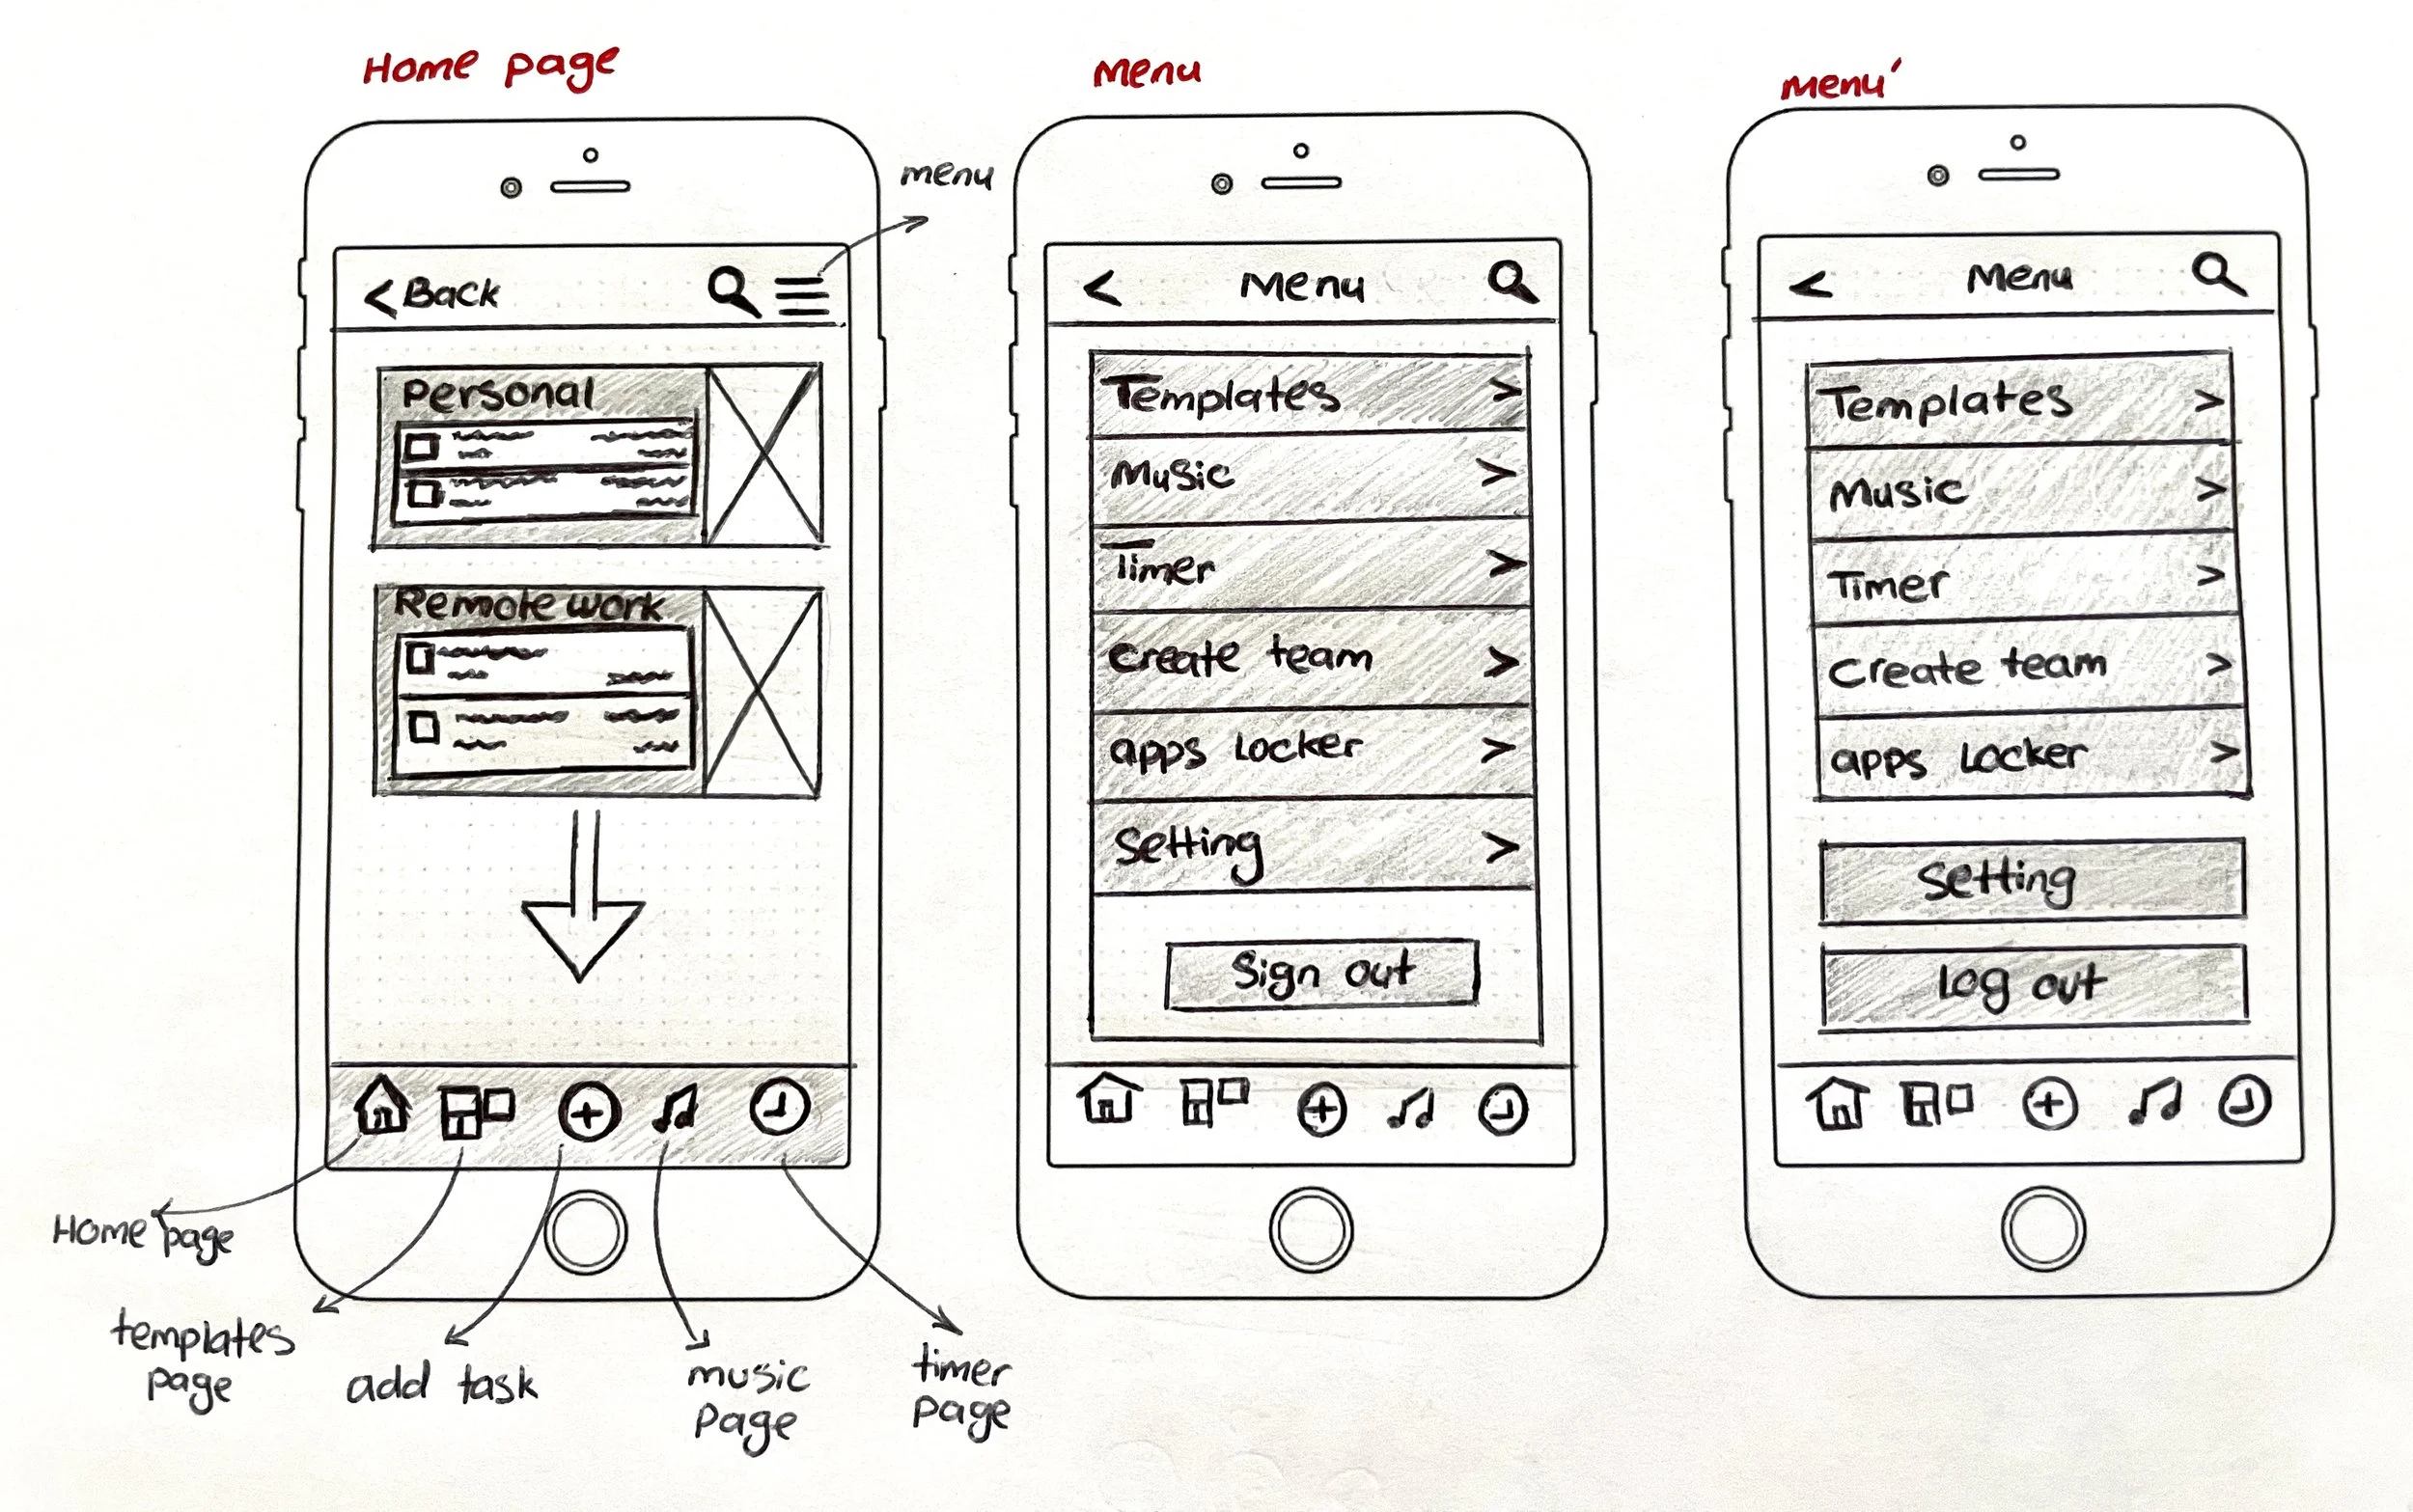 Home page
menu
< Back
Personal
Remote work
Home page
templates
page
add task
music
page
timer
page
Menu
< Menu
Templates >
Music >
Timer >
Create team >
apps Locker >
Setting >
Sign out
menu'
< Menu
Templates >
Music >
Timer >
Create team >
apps Locker >
Setting
Log out